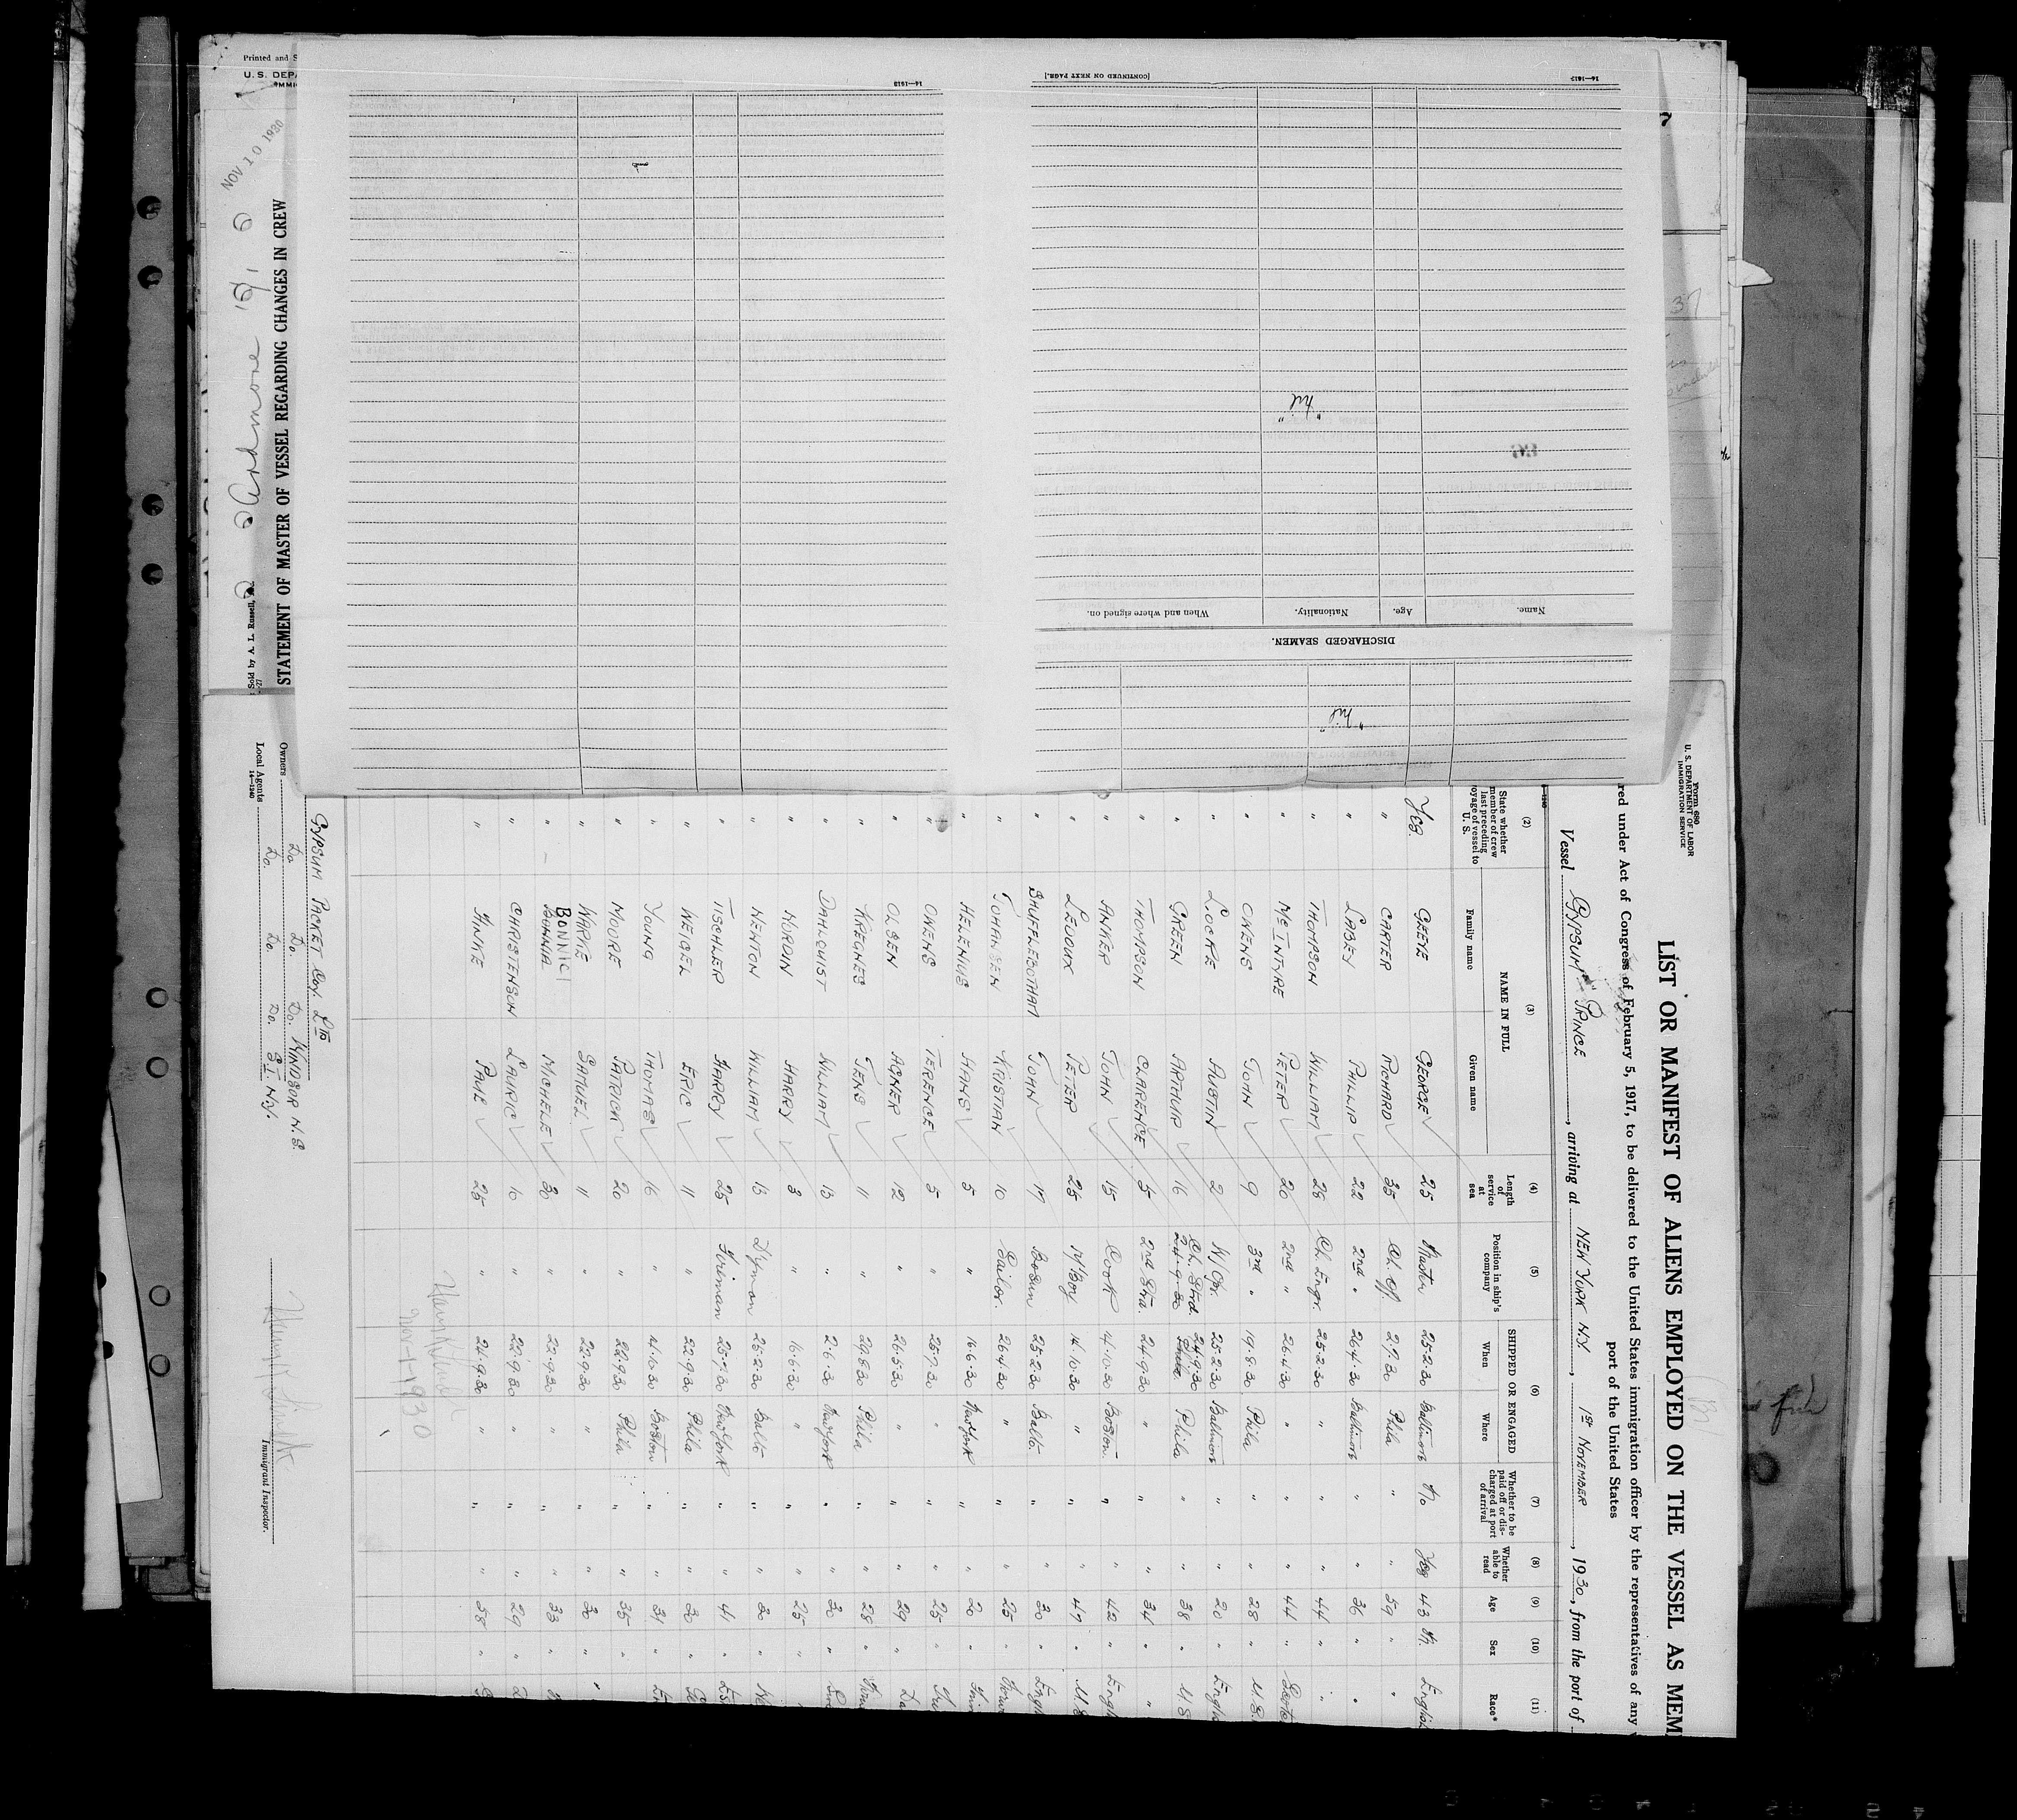 Form 680
U. S. DEPARTMENT OF LABOR
IMMIGRATION SERVICE
LIST OR MANIFEST OF ALIENS EMPLOYED ON THE VESSEL AS MEM
red under Act of Congress of February 5, 1917, to be delivered to the United States immigration officer by the representatives of any
port of the United States
Vessel GYPSUM PRINCE, arriving at NEW YORK N.Y., 1st NOVEMBER, 1930, from the port of
(2) (3) (4) (5) (6) (7) (8) (9) (10) (11)
State whether member of crew last preceding voyage of vessel to U. S. NAME IN FULL Family name Given name Length of service at sea Position in ship's company SHIPPED OR ENGAGED When Where Whether to be paid off or discharged at port of arrival Whether able to read Age Sex Race*
Yes. GEORGE 25 Master 25.2.30 Baltimore No Yes 43 M. English
" CARTER RICHARD 35 Ch. Off. Phila " " 59 " "
" LABEY PHILLIP 22 2nd " 26.4.30 Baltimore " " 36 " "
" THOMPSON WILLIAM 25 Ch. Engr. 25.2.30 " " " 44 " "
" McINTYRE PETER 20 2nd " 26.4.30 " " " 44 "
" OWENS JOHN 9 3rd " 19.8.30 Phila " " 28 "
" LOCKE AUSTIN 2 W/Opr. 25.2.30 Baltimore " " 20 " Englis
" GREEN ARTHUR 16 Ch. Strd. 24.9.30 Phila " " 38 "
" THOMPSON CLARENCE 5 2nd Strd. 24.9.30 " " " 34 " "
" ANKER JOHN 15 Cook 4.10.30 Boston " " 42 " Engli
" LEDOUX PETER 25 M/Boy 14.10.30 " " " 47 "
" BAUFFLEBOTHAM JOHN 17 Bosun 25.2.30 Balto. " " 30 " Engli
" JOHANSEN KRISTIAN 10 Sailor. 26.4.30 " " " 25 " Norw
" HELENIUS HANS 5 " 16.6.30 New York " " 20 "
" OWENS TERENCE 5 " 25.7.30 " " " 25 "
" OLSEN AGNER 12 " 26.5.30 " " " 29 " Da
" JENS 11 " 29.8.30 Phila " " 28 "
" DAHLQUIST WILLIAM 13 " 2.6.30 New York " " 30 "
" NORDIN HARRY 3 " 16.6.30 " " " 25 " "
" NEWTON WILLIAM 13 25.2.30 Balto " " 30 "
" TISCHLER HARRY 25 Fireman 25.7.30 New York " " 41 " Es
" WEIGEL ERIC 11 " 22.9.30 Phila " " 30 "
" YOUNG THOMAS 16 " 4.10.30 Boston " " 31 " En
" MOORE PATRICK 20 " 22.9.30 Phila " " 35 "
" SAMUEL 11 " 22.9.30 " " " 30 " "
" BONNICI MICHELE 30 " 22.9.30 " " " 33 "
" CHRISTENSON LAURIC 10 " 22.9.30 " " " 29 "
" FINKE PAUL 25 " 24.9.30 " " " 38 "
NOV-1-1930
GYPSUM PACKET Coy. LTD
Owners Do Do. Do. WINDSOR N.S.
Local Agents Do. Do. Do. S.I. N.Y.
14—1240
Immigrant Inspector.
Printed and S
U. S. DEPA
IMMI
NOV 10 1930
Ardmore
STATEMENT OF MASTER OF VESSEL REGARDING CHANGES IN CREW
Sold by A. L. Russell,
"nil"
DISCHARGED SEAMEN.
Name. Age. Nationality. When and where signed on.
"nil"
[CONTINUED ON NEXT PAGE.]
37